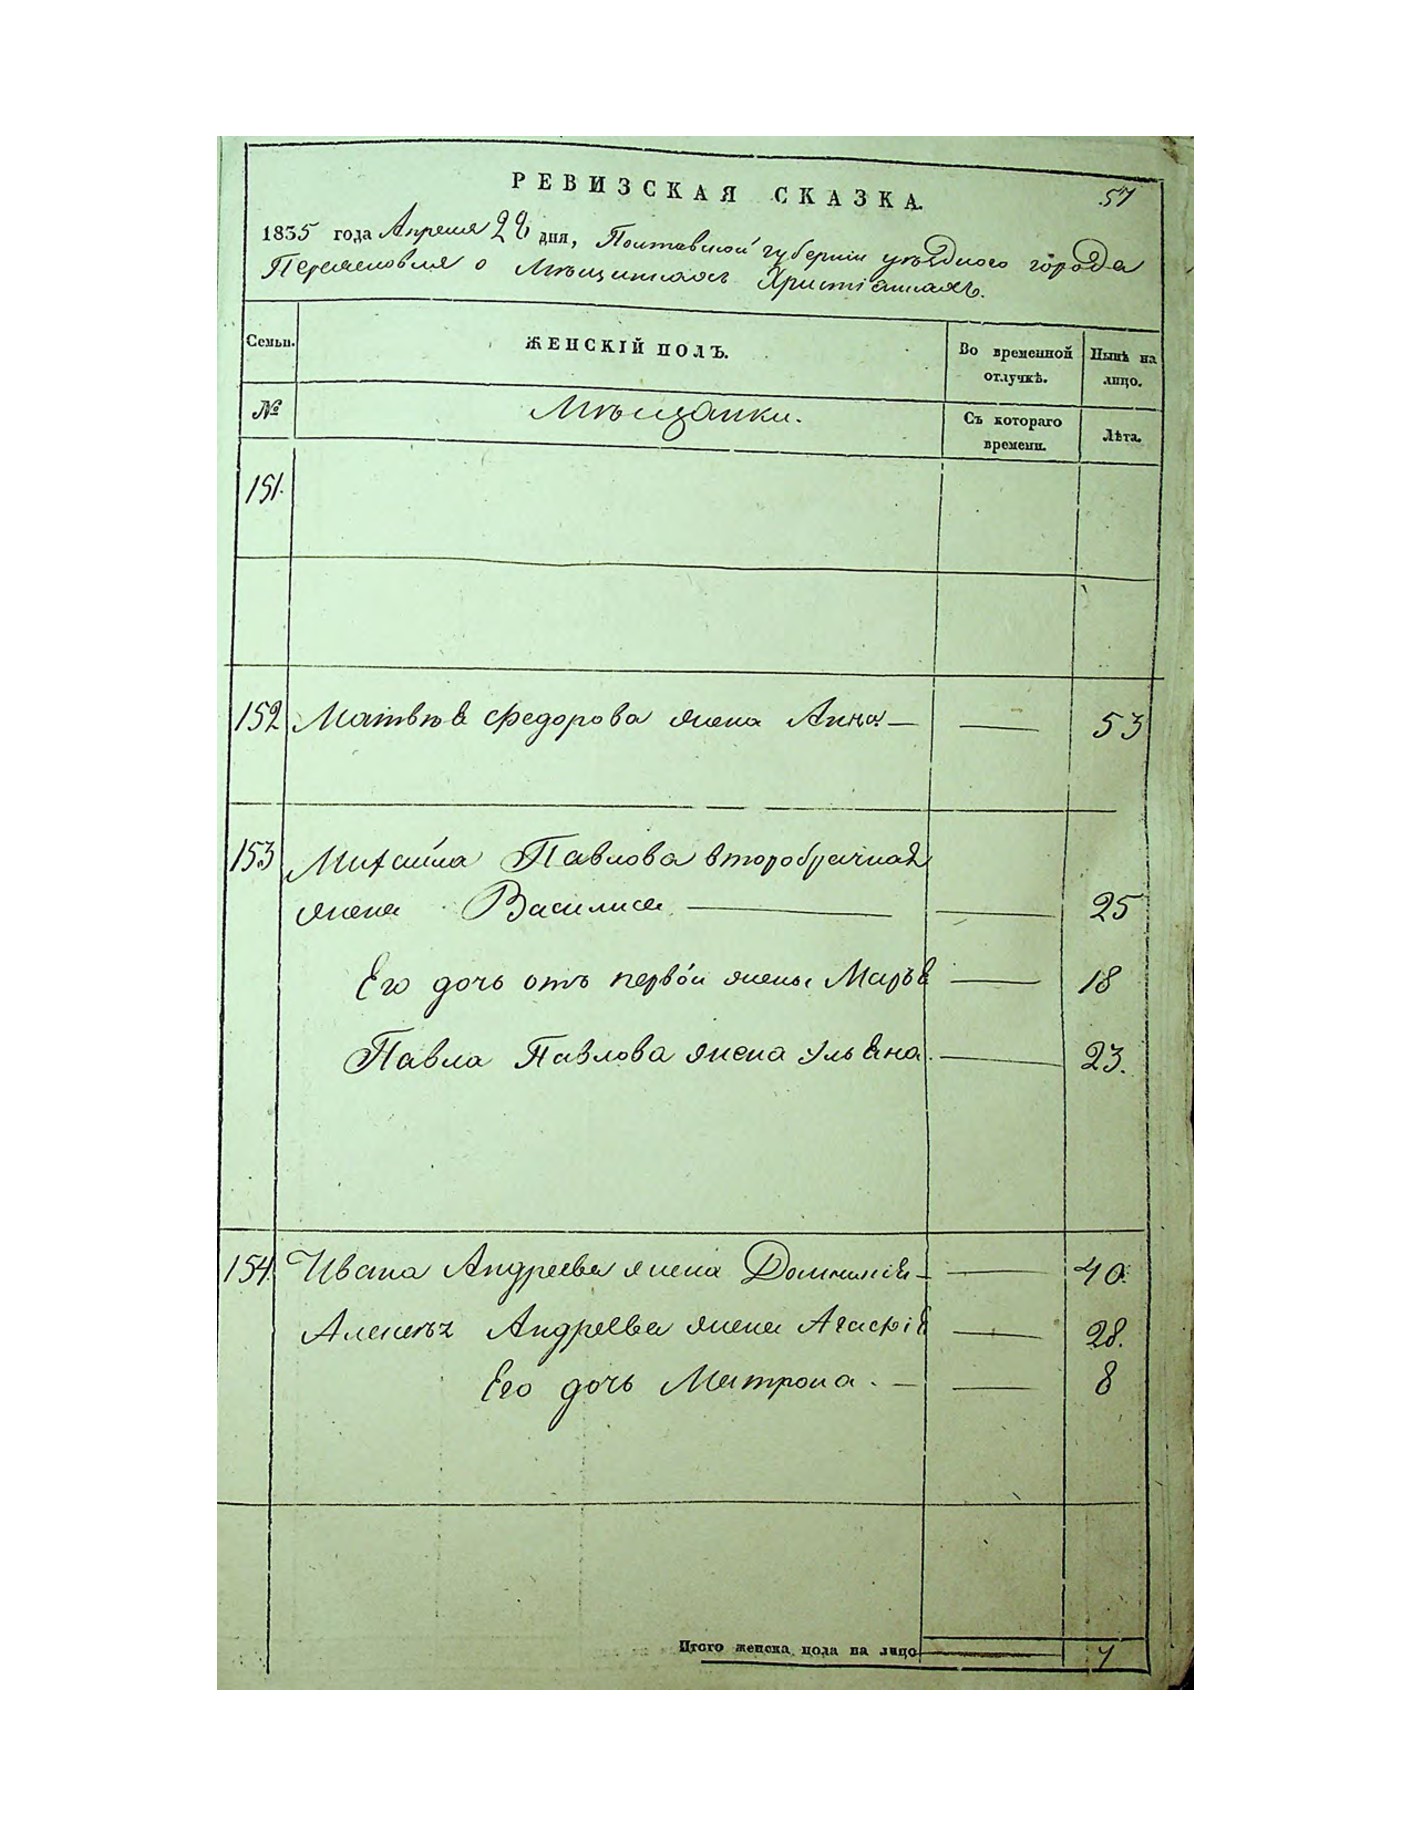 РЕВИЗСКАЯ СКАЗКА.
57
1835 года Апреля 28 дня, Полтавской губернии уѣздного города
Переяславля о Мѣщанахъ Христіанахъ.
Семьи.
ЖЕНСКІЙ ПОЛЪ.
Во временной отлучкѣ.
Нынѣ на лицо.
№
Мѣщанки.
Съ котораго времени.
Лѣта.
151.
152 Матвѣя Федорова жена Анна — — 53
153 Михайла Павлова второбрачная
жена Василиса — — 25
Его дочь отъ первой жены Марья — 18
Павла Павлова жена Ульяна. — 23.
154. Ивана Андреева жена Домникія — — 40.
Алексѣя Андреева жена Агафія — 28.
Его дочь Матрона. — — 8
Итого женска пола на лицо — 7